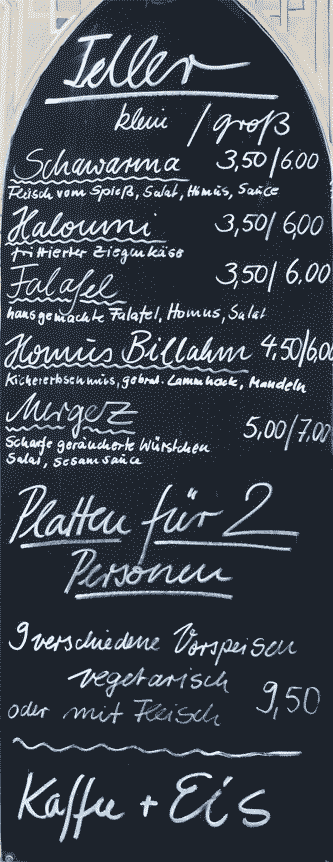 Teller
klein / groß
Schawarma 3,50/6.00
Fleisch vom Spieß, Salat, Homus, Sauce
Haloumi 3,50/6,00
frittierter Ziegenkäse
Falafel 3,50/6.00
hausgemachte Falafel, Homus, Salat
Homus Billahm 4.50/6,00
Kichererbsenmus, gebrat. Lammhack, Mandeln
Mergez 5,00/7.00
Scharfe geräucherte Würstchen
Salat, Sesamsauce
Platten für 2
Personen
9 verschiedene Vorspeisen
vegetarisch
oder mit Fleisch 9,50
Kaffee + Eis